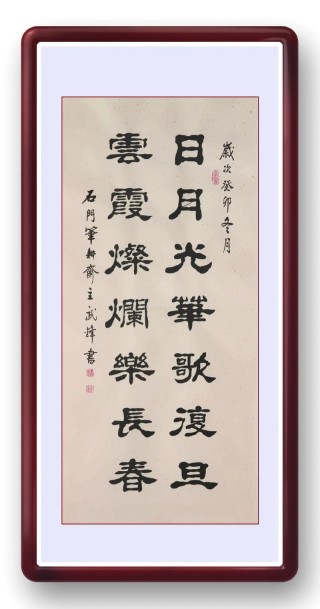 歲次癸卯冬月
日月光華歌復旦
雲霞燦爛樂長春
石門筆耕齋主武煒書